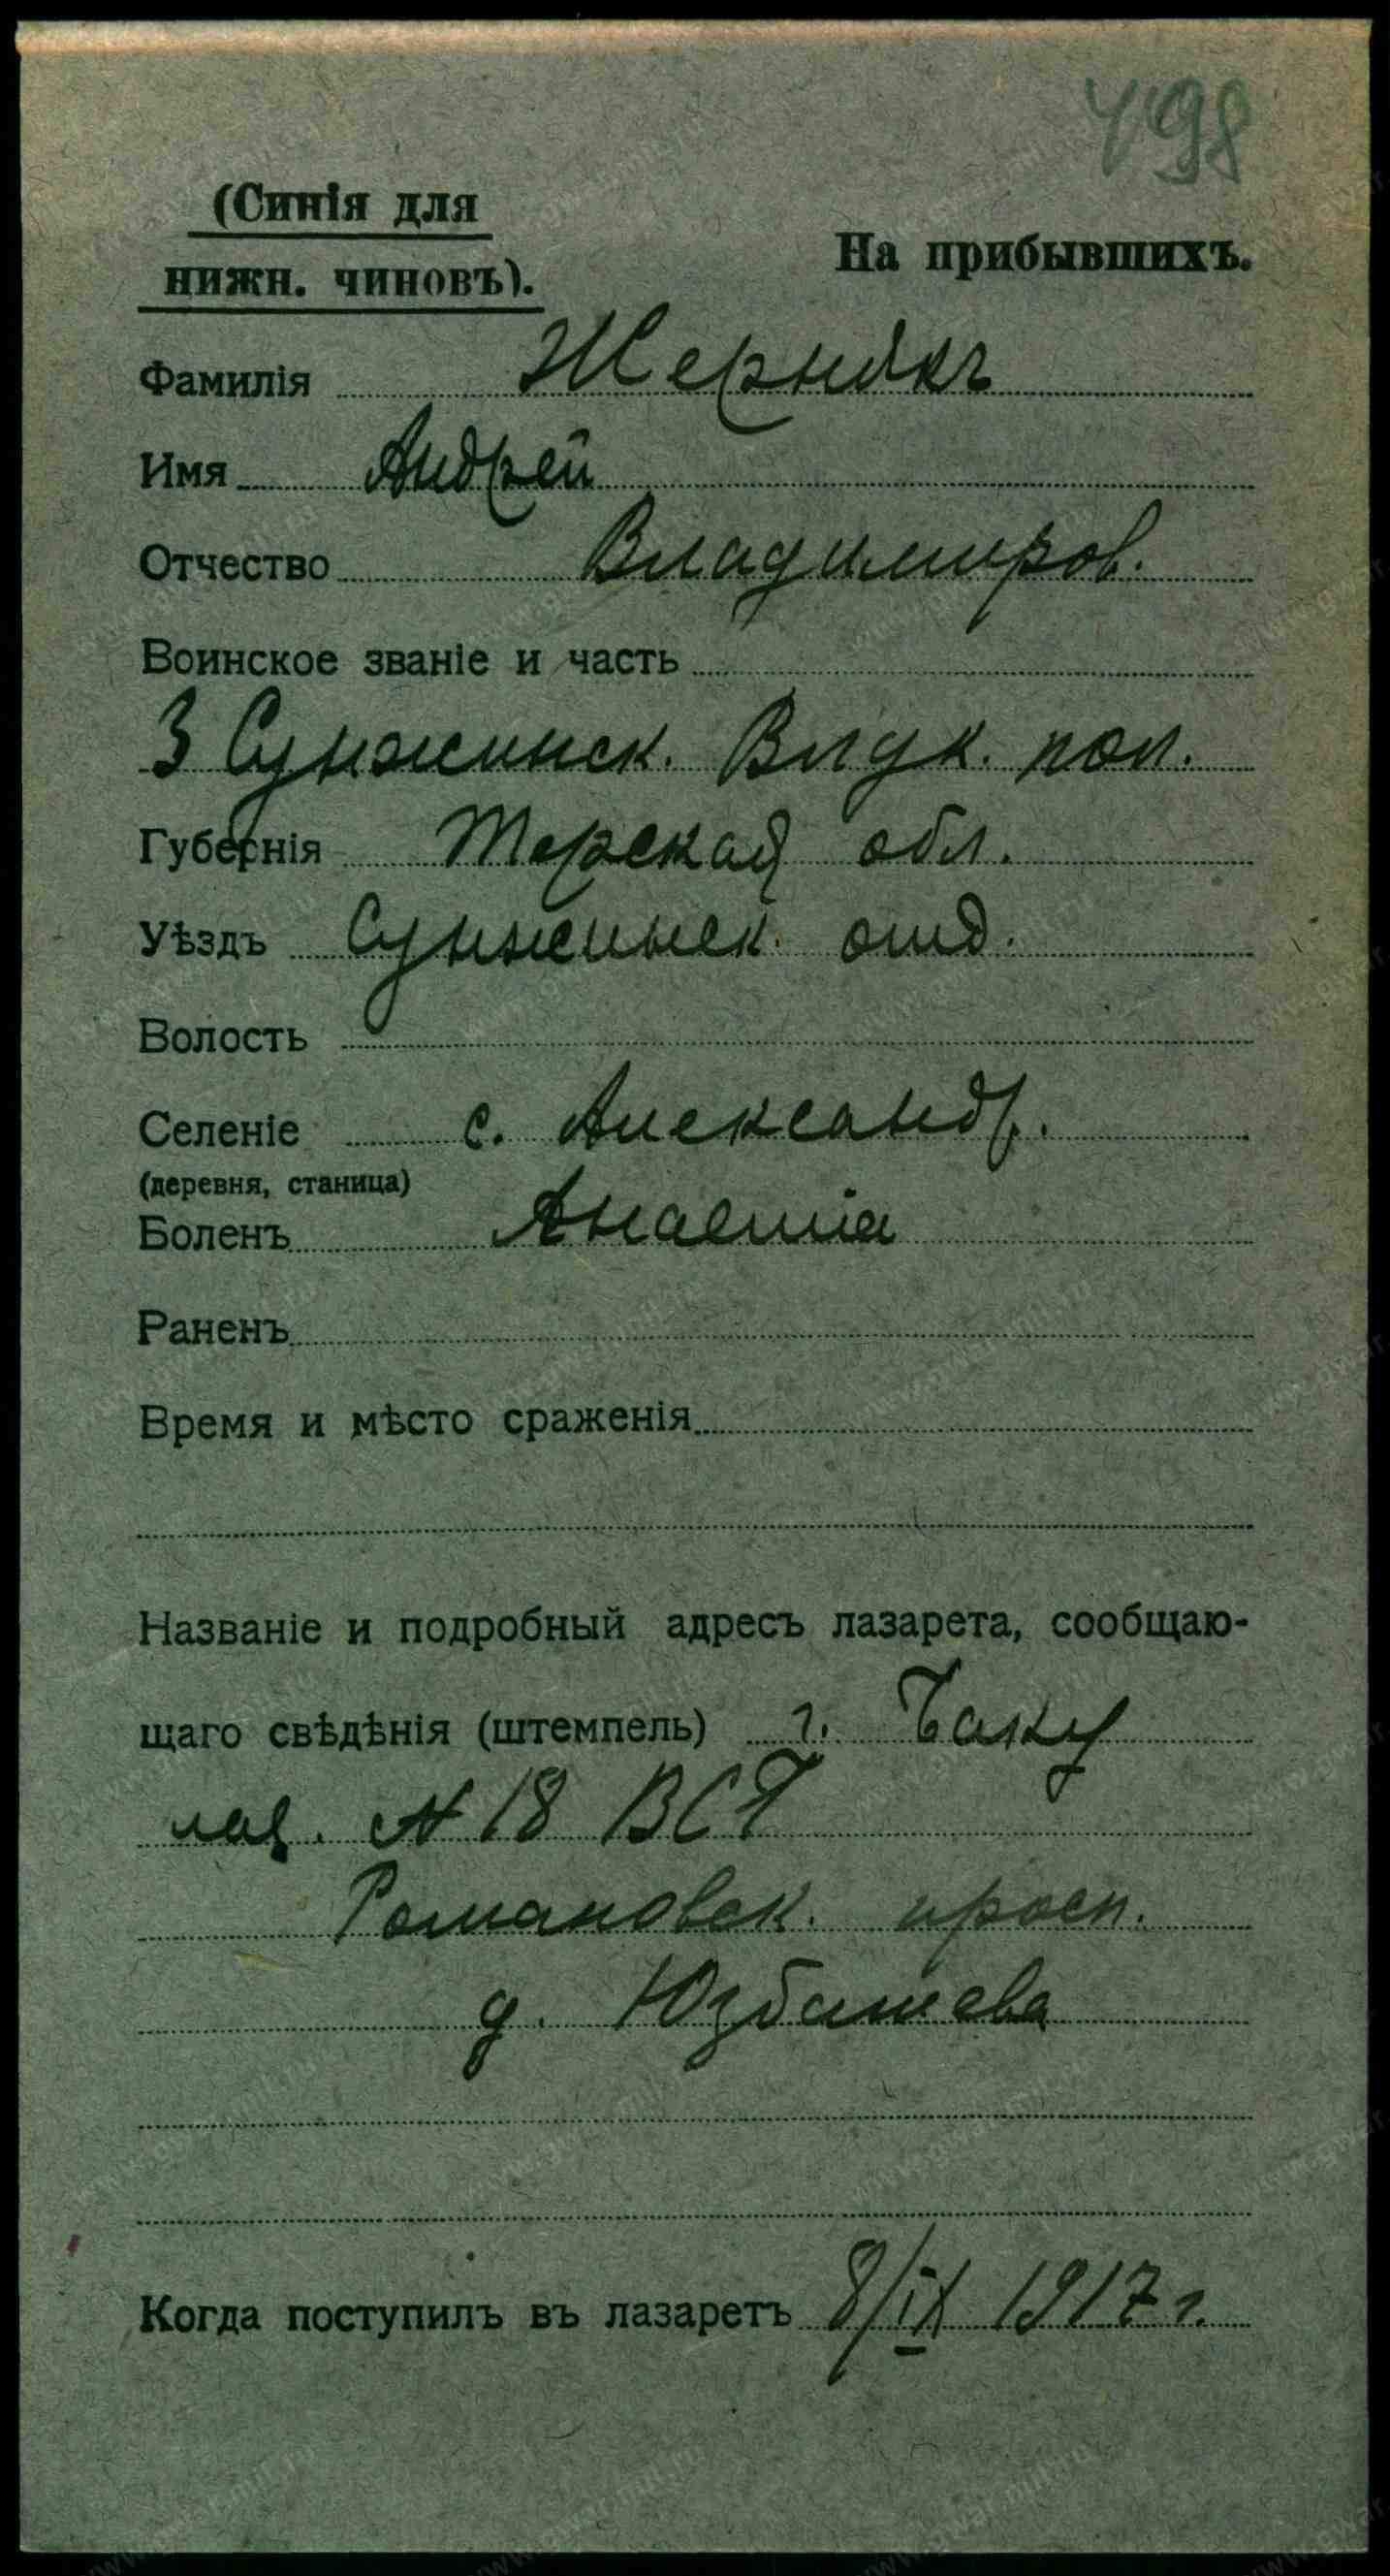 498
(Синія для
нижн. чиновъ).
На прибывшихъ.
Фамилія Жернякъ
Имя Андрей
Отчество Владимиров.
Воинское званіе и часть
3 Сунжинск. Влдк. пол.
Губернія Терская обл.
Уѣздъ Сунженск. отд.
Волость
Селеніе с. Александр.
(деревня, станица)
Боленъ Анаемiа
Раненъ
Время и мѣсто сраженія
Названіе и подробный адресъ лазарета, сообщаю-
щаго свѣдѣнія (штемпель) г. Баку
лаз. № 18 ВСГ
Романовск. просп.
д. Юзбашева
Когда поступилъ въ лазаретъ 8/IX 1917 г.